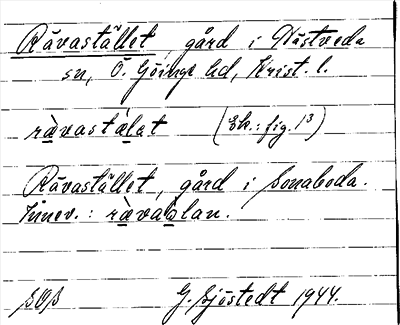 Rävastället, gård i Nästveda
sn, Ö. Göinge hd, Krist. l.
rævastælat (Sk.: fig. 13)
Rävastället, gård i Sonaboda.
Innev.: rævabolan.
G. Sjöstedt 1944.